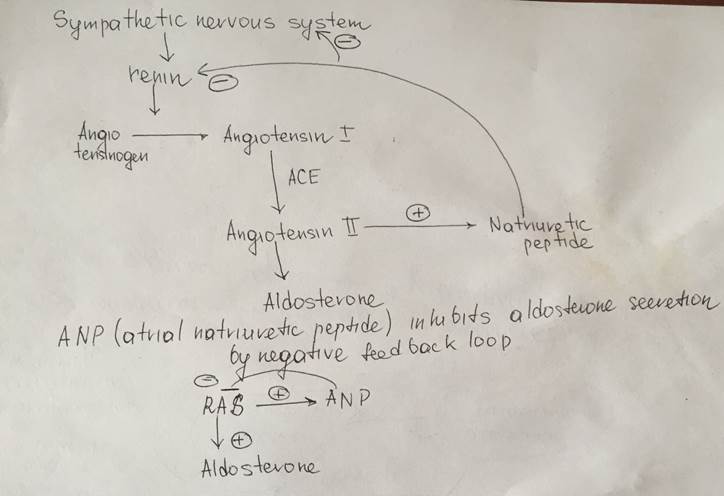 Sympathetic nervous system
⊖
renin
⊖
Angio
tensinogen
Angiotensin I
ACE
Angiotensin II
⊕
Natriuretic
peptide
Aldosterone
ANP (atrial natriuretic peptide) inhibits aldosterone secretion
by negative feedback loop
⊖
RAS
⊕
ANP
⊕
Aldosterone